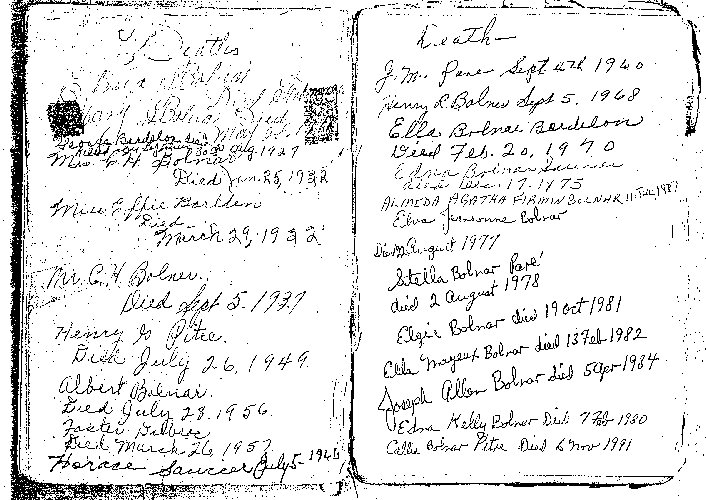 Deaths
Bolner Died
George Bordelon Sr.
Aug. 1927
Mrs. C H Bolnar
Died Jan. 25, 1922
Miss Effie Bordelon
Died
March 29, 1922
Mr. C. H. Bolner.
Died Sept 5. 1937
Henry G Pitre.
Died July 26, 1949.
Albert Bolnar.
Died July 28. 1956.
Foster
Died March 26 1957
Horace Saucier July 5- 1946
Death
J. M. Pare Sept 4th 1940
Henry R. Bolner Sept 5. 1968
Ella Bolnar Bordelon
Died Feb. 20, 1970
Edna Bolnar Saucier
died Dec. 17. 1975
ALMEDA AGATHA FIRMIN BOLNAR 11
Elva Jeansonne Bolnar
Died August 1977
Stella Bolnar Pare'
died 2 August 1978
Elgie Bolnar died 19 Oct 1981
Ella Mayeux Bolnar died 13 Feb 1982
Joseph Allen Bolnar died 5 Apr 1984
Edna Kelly Bolnar Died 7 Feb 1980
Callie Bolnar Pitre Died 6 Nov 1991